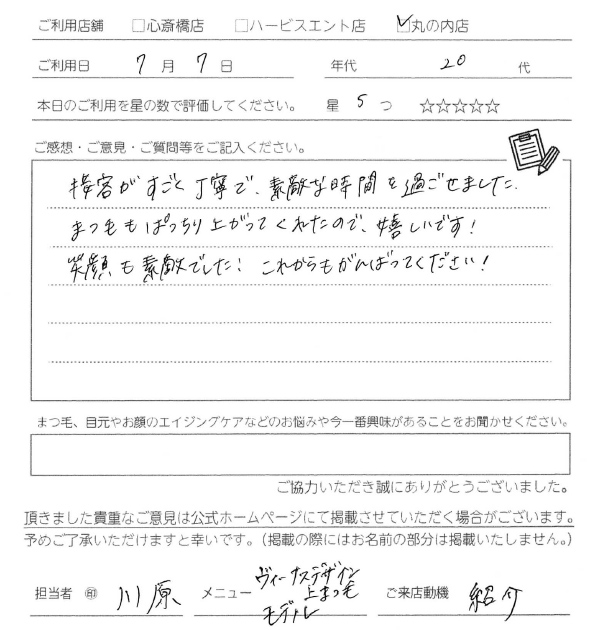 ご利用店舗 □心斎橋店 □ハービスエント店 ☑丸の内店
ご利用日 7月7日 年代 20代
本日のご利用を星の数で評価してください。 星 5つ ☆☆☆☆☆
ご感想・ご意見・ご質問等をご記入ください。
接客がすごく丁寧で、素敵な時間を過ごせました。
まつ毛もぱっちり上がってくれたので、嬉しいです!
笑顔も素敵でした! これからもがんばってください!
まつ毛、目元やお顔のエイジングケアなどのお悩みや今一番興味があることをお聞かせください。
ご協力いただき誠にありがとうございました。
頂きました貴重なご意見は公式ホームページにて掲載させていただく場合がございます。
予めご了承いただけますと幸いです。(掲載の際にはお名前の部分は掲載いたしません。)
担当者 ㊞ 川原 メニュー ヴィーナスデザイン 上まつ毛 モデル ご来店動機 紹介